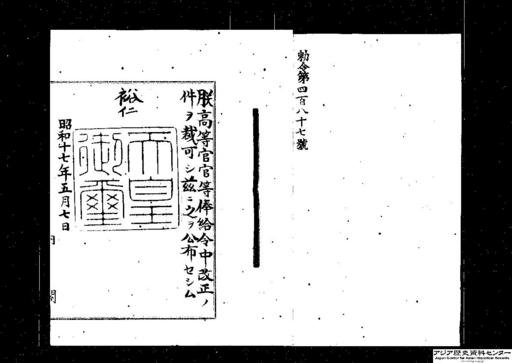 勅令第四百八十七號
朕高等官官等俸給令中改正ノ
件ヲ裁可シ茲ニ之ヲ公布セシム
裕仁
天皇
御璽
昭和十七年五月七日
内閣
アジア歴史資料センター
Japan Center for Asian Historical Records